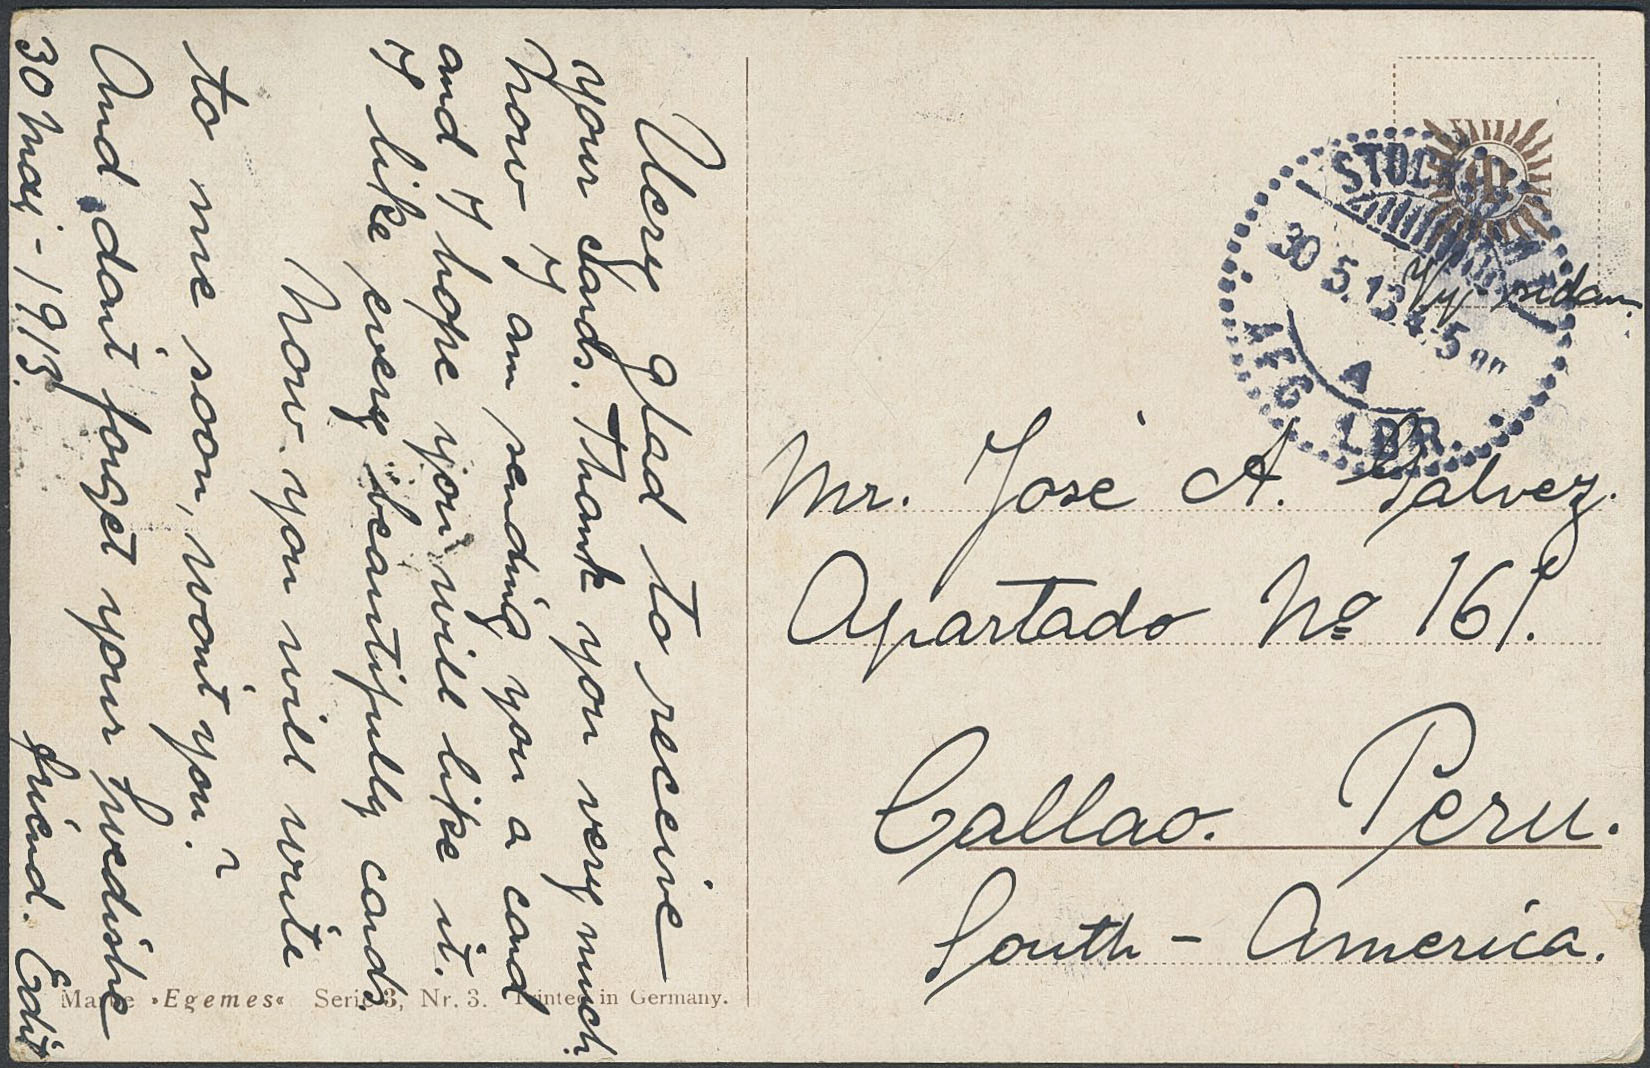 Wery glad to receive
your cards. Thank you very much
now I am sending you a card
and I hope you will like it.
I like every beautifully cards.
Now you will write
to me soon, wont you?
And dont forget your swedishe
friend. Edit
30 Maj - 1913.
Marke »Egemes« Serie 3, Nr. 3. Printed in Germany.
30 5.13 4-5
A
AFG LBR.
Vy sidan.
Mr. José A. Galvez.
Apartado No 161.
Callao. Peru.
South - America.